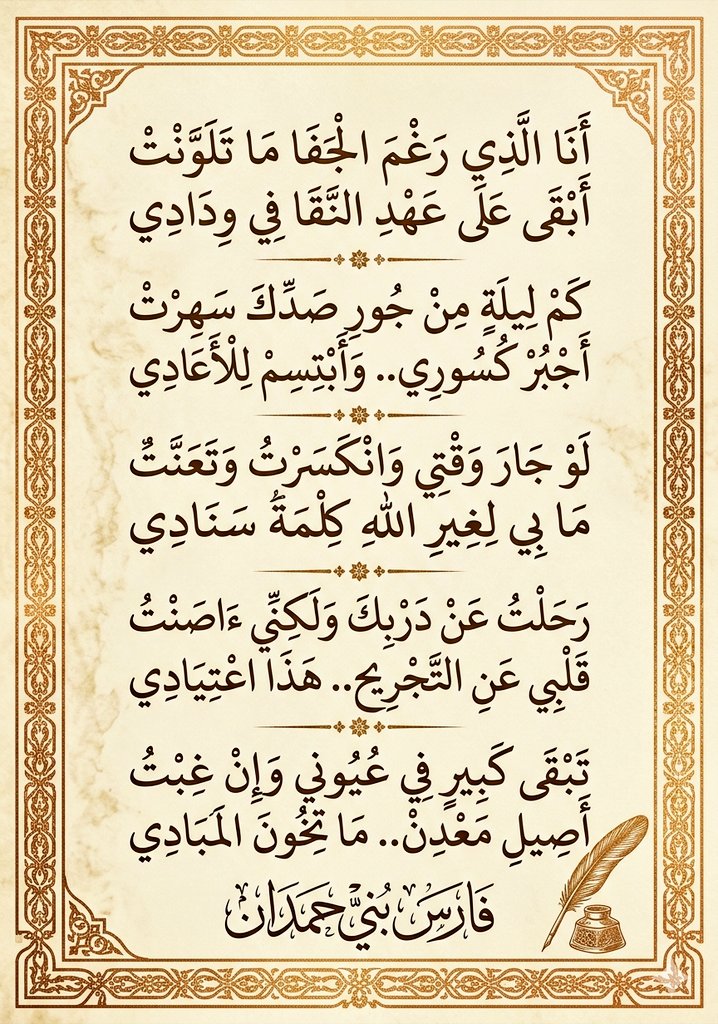 أَنَا الَّذِي رَغْمَ الْجَفَا مَا تَلَوَّنْتْ
أَبْقَى عَلَى عَهْدِ النَّقَا فِي وِدَادِي
كَمْ لِيلَةٍ مِنْ جُورِ صَدِّكَ سَهِرْتْ
أَجْبُرْ كُسُورِي.. وَأَبْتِسِمْ لِلْأَعَادِي
لَوْ جَارَ وَقْتِي وَانْكَسَرْتُ وَتَعَنَّتٌ
مَا بِي لِغِيرِ اللهِ كِلْمَةُ سَنَادِي
رَحَلْتُ عَنْ دَرْبِكَ وَلَكِنِّي ءَاصَنْتُ
قَلْبِي عَنِ التَّجْرِيحِ.. هَذَا اعْتِيَادِي
تَبْقَى كَبِيرٍ فِي عُيُونِي وَإِنْ غِبْتُ
أَصِيلِ مَعْدِنْ.. مَا تِخُونَ المَبَادِي
فَارَسَ بُنيَّ حَمَدَان